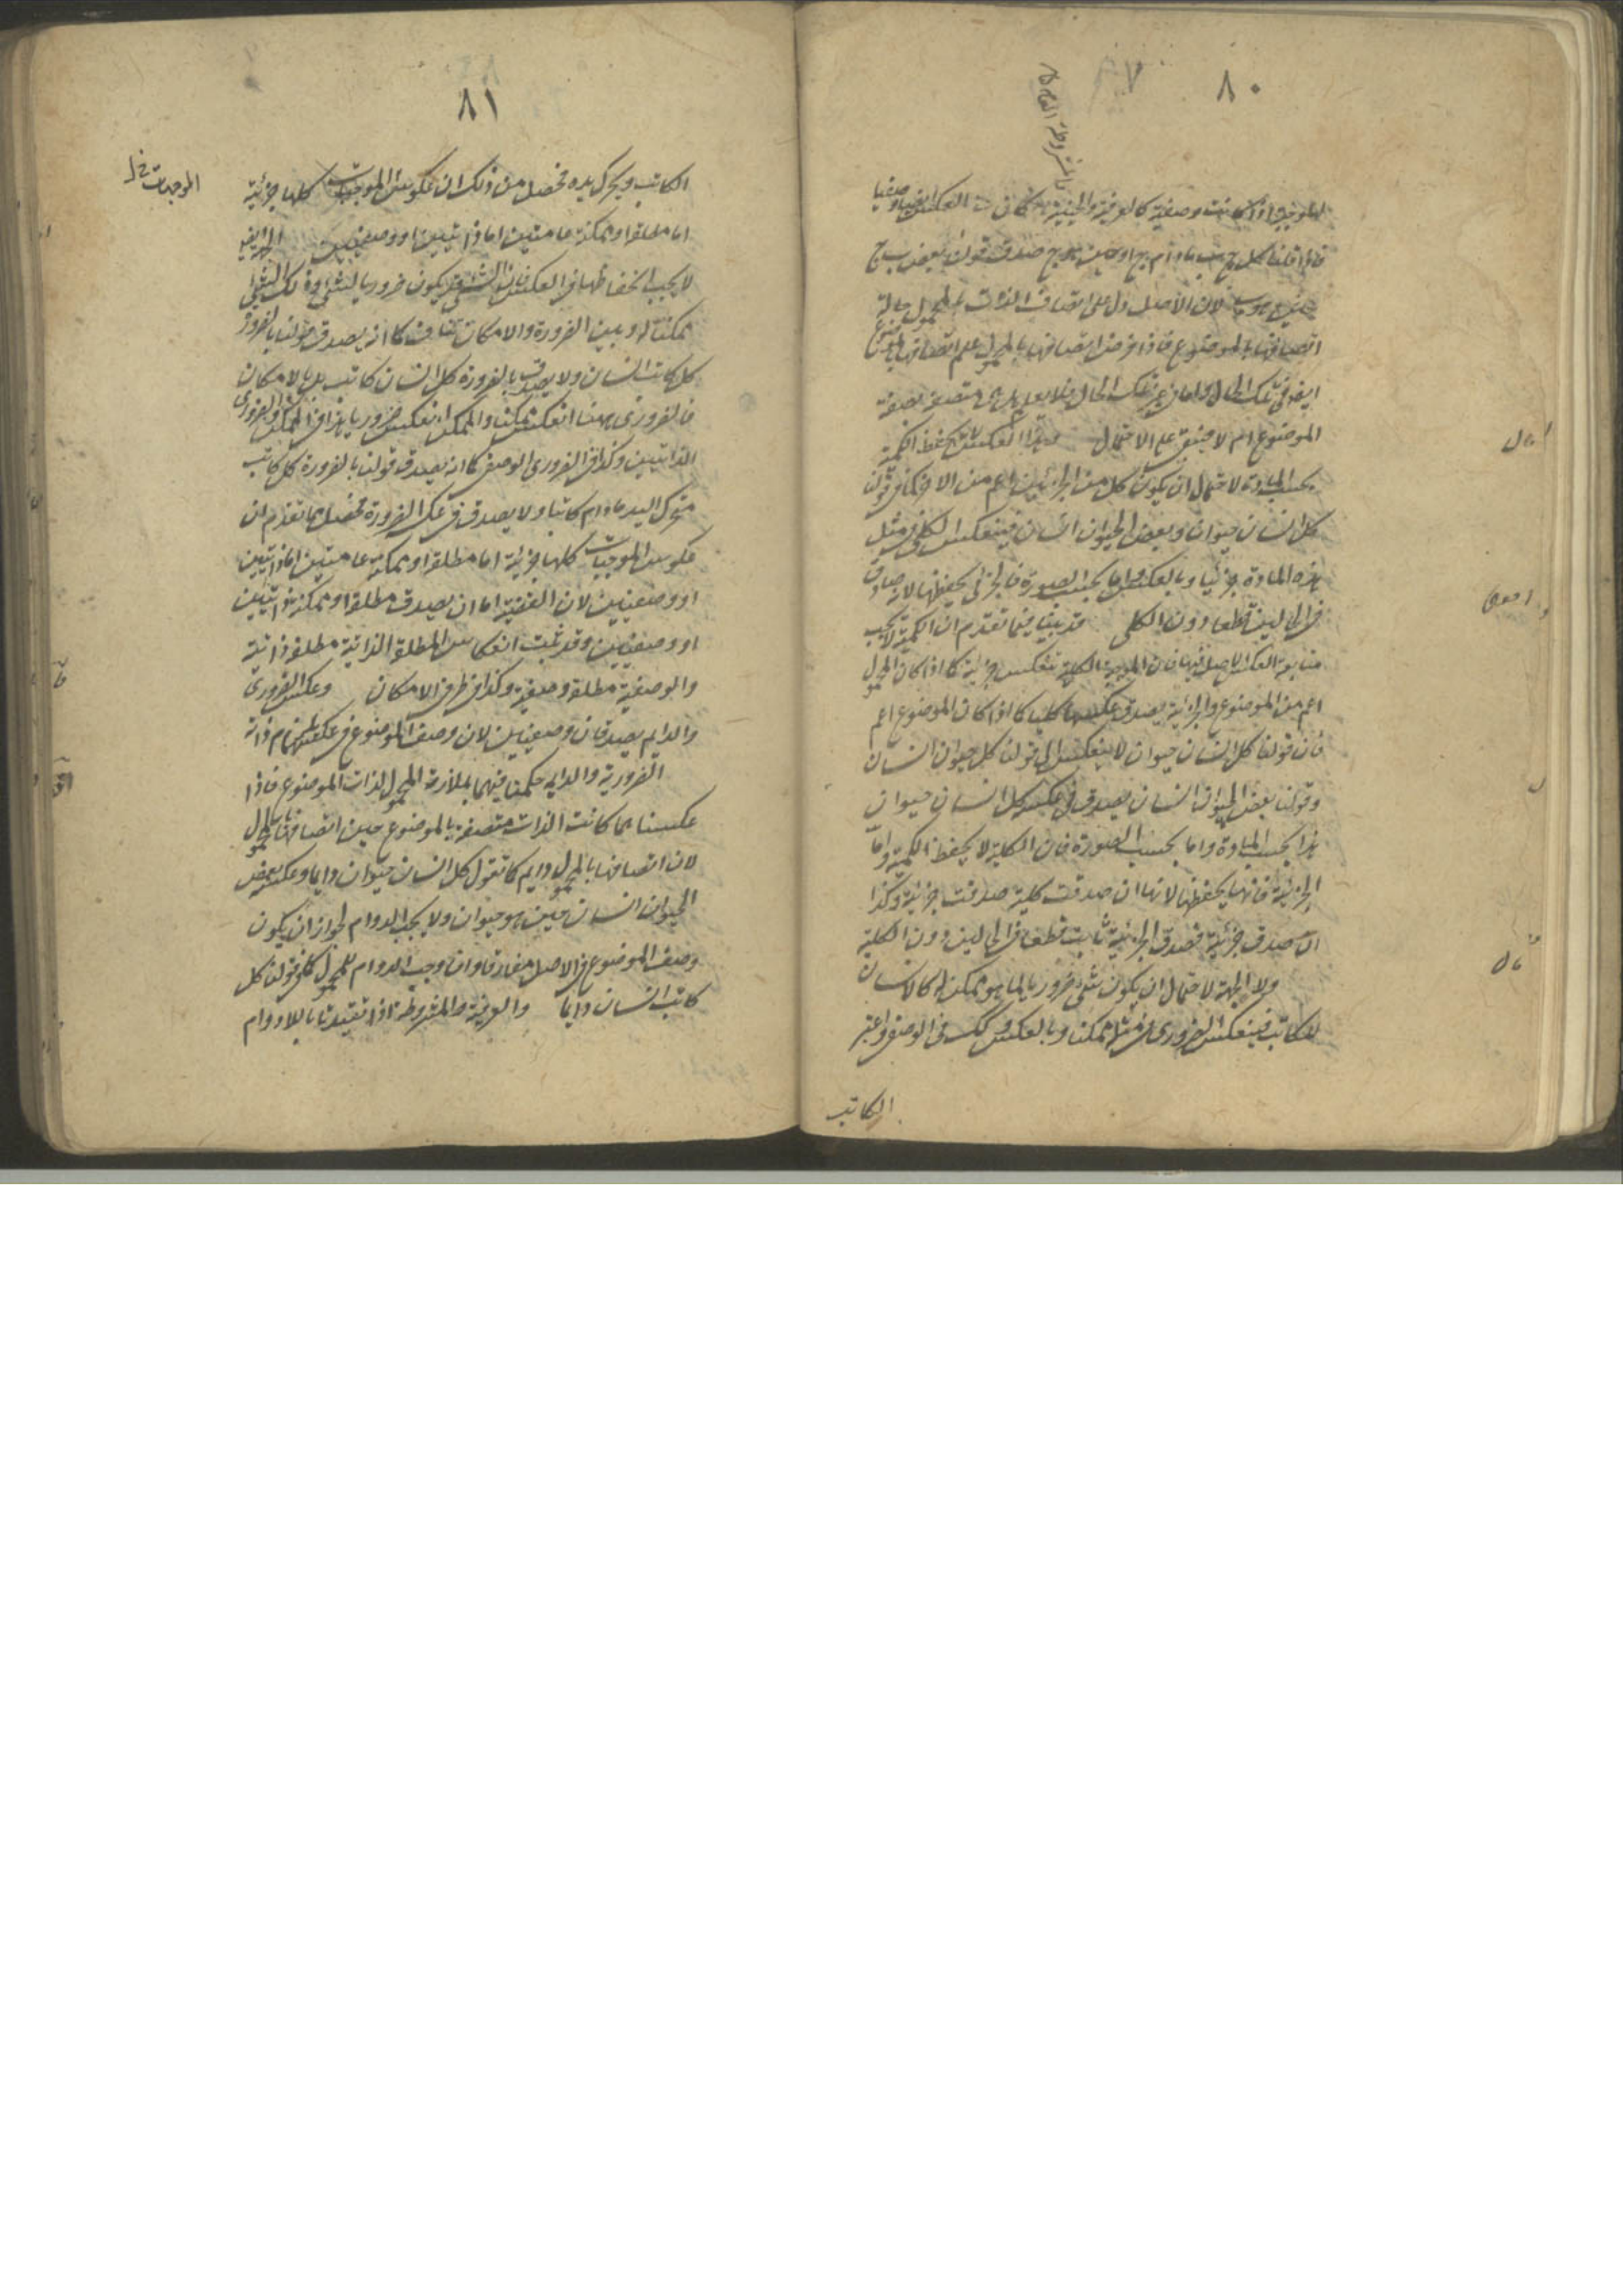 ٨٠
الموجبة اذا كانت وصفية كالعرفية والحينية كان العكس ايضا وصفيا
فاذا قلنا كل ج ب مادام ج او حين هو ج صدق قولنا بعض ب ج
حين هو ب لان الاصل دل على اتصاف الذات بالمحمول حالة
اتصافها بالموضوع فاذا فرض اتصافها بالمحمول علم اتصافها بالموضوع
ايضا فى تلك الحال واما فى غير تلك الحال فلا يعلم هل هى متصفة بصفة
الموضوع ام لا فبقى على الاحتمال وهذا العكس لا يحفظ الكمية
بحسب المادة لاحتمال ان يكون كل من الجزئين اعم من الاخر كما فى قولنا
كل انسان حيوان وبعض الحيوان انسان فينعكس الكلى فى مثل
هذه المادة جزئيا وبالعكس واما بحسب الصورة فالجزئى يحفظها لانه صادق
فى الحالين قطعا دون الكلى قد بينا فيما تقدم ان الكمية لا يجب
متابعة العكس للاصل فيها فان الموجبة الكلية تنعكس جزئية كما اذا كان المحمول
اعم من الموضوع والجزئية يصدق عكسها كليا كما اذا كان الموضوع اعم
فان قولنا كل انسان حيوان لا ينعكس الى قولنا كل حيوان انسان
وقولنا بعض الحيوان انسان يصدق فى عكسه كل انسان حيوان
هذا بحسب المادة واما بحسب الصورة فان الكلية لا يحفظ الكمية واما
الجزئية فانها يحفظها لانها ان صدقت كلية صدقت جزئية وكذا
ان صدق جزئية فصدق الجزئية ثابت قطعا فى الحالين دون الكلية
ولا الجهة لاحتمال ان يكون شئ ضروريا لما هو ممكن له كالانسان
للكاتب فينعكس الضرورى فى مثله ممكنا وبالعكس وكذلك فى الوصفى واعتبر
الكاتب
٨١
الكاتب ويحرك يده فحصل من ذلك ان عكوس الموجبات كلها جزئية
الموجهات خ ل
اما مطلقة او ممكنة عامتين اما ذاتيتين او وصفيتين الجهة ايضا
لا يجب انحفاظها فى العكس فان الشئ قد يكون ضروريا لشئ وذلك الشئ
ممكنا له وبين الضرورة والامكان تناف كما انه يصدق قولنا بالضرورة
كل كاتب انسان ولا يصدق بالضرورة كل انسان كاتب بل بالامكان
فالضرورى ههنا انعكس ممكنا والممكن انعكس ضروريا هذا فى الممكن والضرورى
الذاتيين وكذا فى الضرورى الوصفى كما انه يصدق قولنا بالضرورة كل كاتب
متحرك اليد مادام كاتبا ولا يصدق فى عكسه الضرورة فحصل مما تقدم ان
عكوس الموجبات كلها جزئية اما مطلقة او ممكنة عامتين اما ذاتيتين
او وصفيتين لان القضية اما ان يصدق مطلقة او ممكنة ذاتيتين
او وصفيتين وقد ثبت انعكاس المطلقة الذاتية مطلقة ذاتية
والوصفية مطلقة وصفية وكذا فى طرف الامكان وعكس الضرورى
والدايم يصدقان وصفيتين لان وصف الموضوع فى عكسهما دائم ذاته
الضرورية والدايمة حكمنا فيهما بملازمة المحمول لذات الموضوع فاذا
عكسناهما كانت الذات متصفة بالموضوع حين اتصافها بالمحمول
لان اتصافها بالمحمول دايم كما تقول كل انسان حيوان دايما وعكسه بعض
الحيوان انسان حين هو حيوان ولا يجب الدوام لجواز ان يكون
وصف الموضوع فى الاصل مفارقا وان وجب الدوام للمحمول كما فى قولنا كل
كاتب انسان دايما والعرفية والمشروطة اذا تقيدتا باللادوام